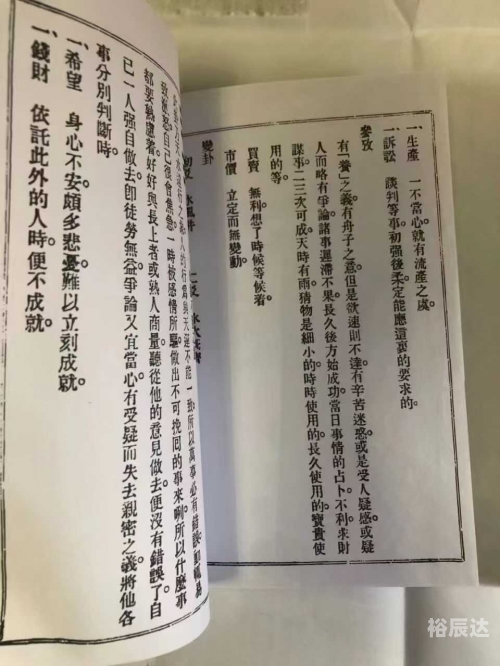 一、生產　一不當心、就有流產之虞。
一、訴訟　談判等事、初强後柔、定能應這裏的要求的。
參攷
有「養」之義、有舟子之意、但是欲速則不達、有辛苦迷惑、或是受人疑感、或疑
人而略有爭論、諸事遲滯不果。長久後方始成功。當日事情的占卜、不利。求財
謀事、二三次可成。天時有雨。猜物是細小的、時時使用的。長久使用的、寶貴使
用的等。
買賣　無利、想了時候等候着
市價　立定而無變動。
變卦
都要熟慮着、好好與長上者、或熟人商量、聽從他的意見做去、便沒有錯誤了。自
己一人强自做去、卽徒勞無益、爭論又宜當心、有受疑而失去親密之義。將他各
事分別判斷時。
一、希望　身心不安、頗多悲憂、難以立刻成就。
一、錢財　依託此外的人時、便不成就。
裕辰达